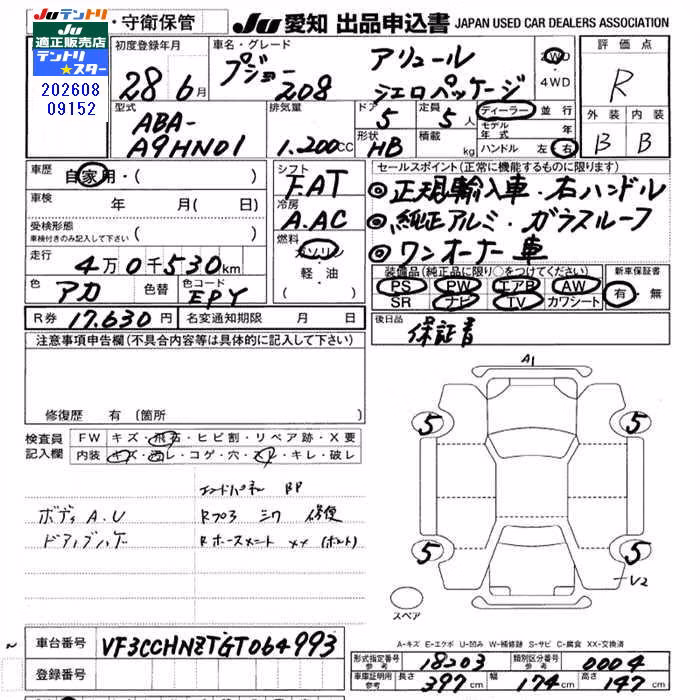 Juテントリ
適正販売店
テントリ
★スター
202608
09152
・守衛保管
Ju 愛知 出品申込書 JAPAN USED CAR DEALERS ASSOCIATION
初度登録年月
28 6月
車名・グレード
プジョー 208
アリュール
シエロパッケージ
2WD
4WD
評価点
R
外装 内装
B B
型式
ABA-
A9HN01
排気量
1.200cc
ドア
5
定員
5人
形状
HB
積載
kg
ディーラー 並行
モデル年式 年
ハンドル 左 右
車歴
自家用・( )
車検
年 月( 日)
受検形態
車検付きのみ記入して下さい
( )
走行
4万0千530km
色
アカ
色替
色コード
EPY
シフト
F.AT
冷房
A.AC
燃料
ガソリン
・
軽・油
セールスポイント(正常に機能するものに限ります)
◎正規輸入車・右ハンドル
◎純正アルミ・ガラスルーフ
◎ワンオーナー車
装備品(純正品に限り○をつけてください)
PS PW エアB AW
SR ナビ TV カワシート
新車保証書
有・無
R券 17.630円
名変通知期限 月 日
後日品
保証書
注意事項申告欄(不具合内容等は具体的に記入して下さい)
修復歴 有 〔箇所 〕
検査員
記入欄
FW キズ・飛石・ヒビ割・リペア跡・X要
内装 キズ・汚レ・コゲ・穴・スレ・キレ・破レ
エンドパネル BP
ボディ A.U
Rフロア シワ 修復
A1
5
5
5
5
V2
スペア
A-キズ E-エクボ U-凹み W-補修跡 S-サビ C-腐食 XX-交換済
車台番号 VF3CCHNZTGT064993
登録番号
形式指定番号
参考
18203
類別区分番号
参考
0004
車庫証明用
参考
長さ 397cm
幅 174cm
高さ 147cm